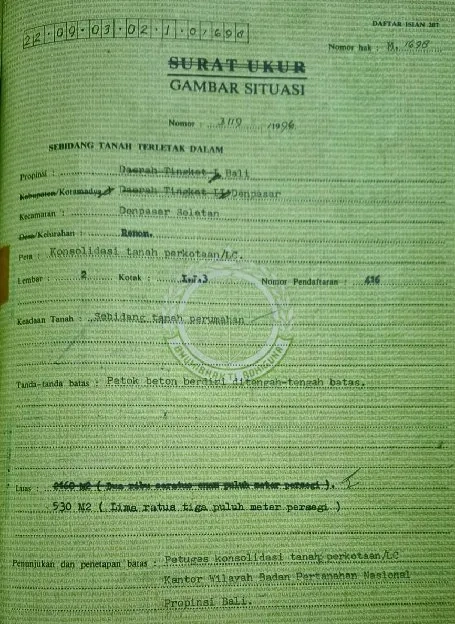 DAFTAR ISIAN 207
22.09.03.02.1.01698
Nomor hak : M. 1698
SURAT UKUR
GAMBAR SITUASI
Nomor : 3119 /1996
SEBIDANG TANAH TERLETAK DALAM
Propinsi : Daerah Tingkat I Bali
Kabupaten/Kotamadya Daerah Tingkat II Denpasar
Kecamatan : Denpasar Selatan
Desa/Kelurahan : Renon.
Peta : Konsolidasi tanah perkotaan/LC.
Lembar : 2 Kotak : I.J.3 Nomor Pendaftaran : 416
Keadaan Tanah : Sebidang tanah perumahan
Tanda-tanda batas : Patok beton berdiri ditengah-tengah batas.
Luas : 2160 M2 ( Dua ribu seratus enam puluh meter persegi ).
530 M2 ( Lima ratus tiga puluh meter persegi )
Penunjukan dan penetapan batas : Petugas konsolidasi tanah perkotaan/LC
Kantor Wilayah Badan Pertanahan Nasional
Propinsi Bali.